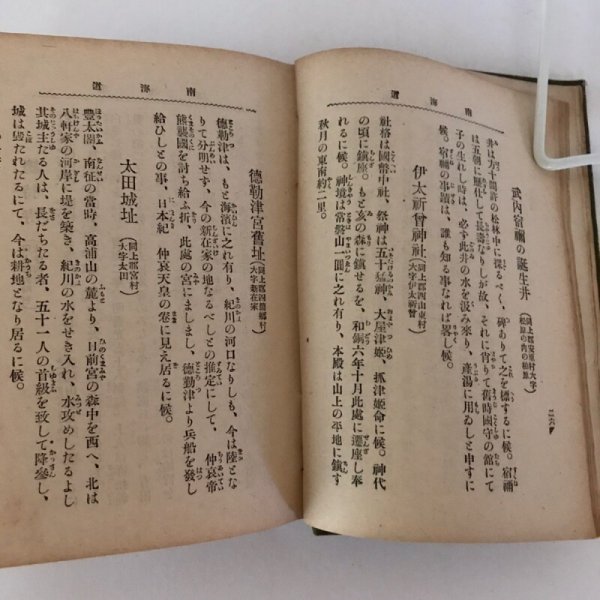 南海道
二六
武内宿禰の誕生井 (同上郡安東村大字松原の内の柏原)
井は方十間許の松林中に深るべく、碑ありて之を標するに候。宿禰
は五朝に歴仕して長壽なりしが故、それに肖りて舊時國守の館にて
子の生れし時は、必す此井の水を汲み來り、産湯に用ゐしと申すに
候。宿禰の事蹟は、誰も知る事なれば畧し候。
伊太祈曾神社 (同上郡西山東村大字伊太祈曾)
社格は國幣中社、祭神は五十猛神、大屋津姫、抓津姫命に候。神代
の頃に鎮座。もと亥の森に鎮せるを、和銅六年十月此處に遷座し奉
れるに候。神境は常磐山一圓に之れ有り、本殿は山上の平地に鎮す
秋月の東南約二里。
南海道
德勒津宮舊址 (同上郡四箇郷村大字新在家)
德勒津は、もと海濱に之れ有り、紀川の河口なりしも、今は陸とな
りて分明せす、今の新在家の地なるべしとの推定にして、仲哀帝
熊襲國を討ち給ふ折、此處の宮にましまし、德勒津より兵船を發し
給ひしとの事、日本紀 仲哀天皇の卷に見え居るに候。
太田城址 (同上郡宮村大字太田)
豐太閤、南征の當時、高浦山の麓より、日前宮の森中を西へ、北は
八軒家の河岸に堤を築き、紀川の水をせき入れ、水攻めしたるよし
其城主たる人は、長だちたる者、五十一人の首級を致して降參し、
城は毀たれたるにて、今は耕地となり居るに候。